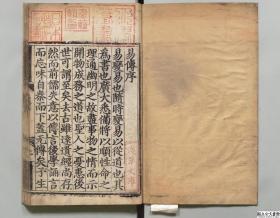 易傳序
易變易也隨時變易以從道也其
為書也廣大悉備將以順性命之
理通幽明之故盡事物之情而示
開物成務之道也聖人之憂患後
世可謂至矣去古雖遠遺經尚存
然而前儒失意以傳言後學誦言
而忘味自秦而下蓋无傳矣予生